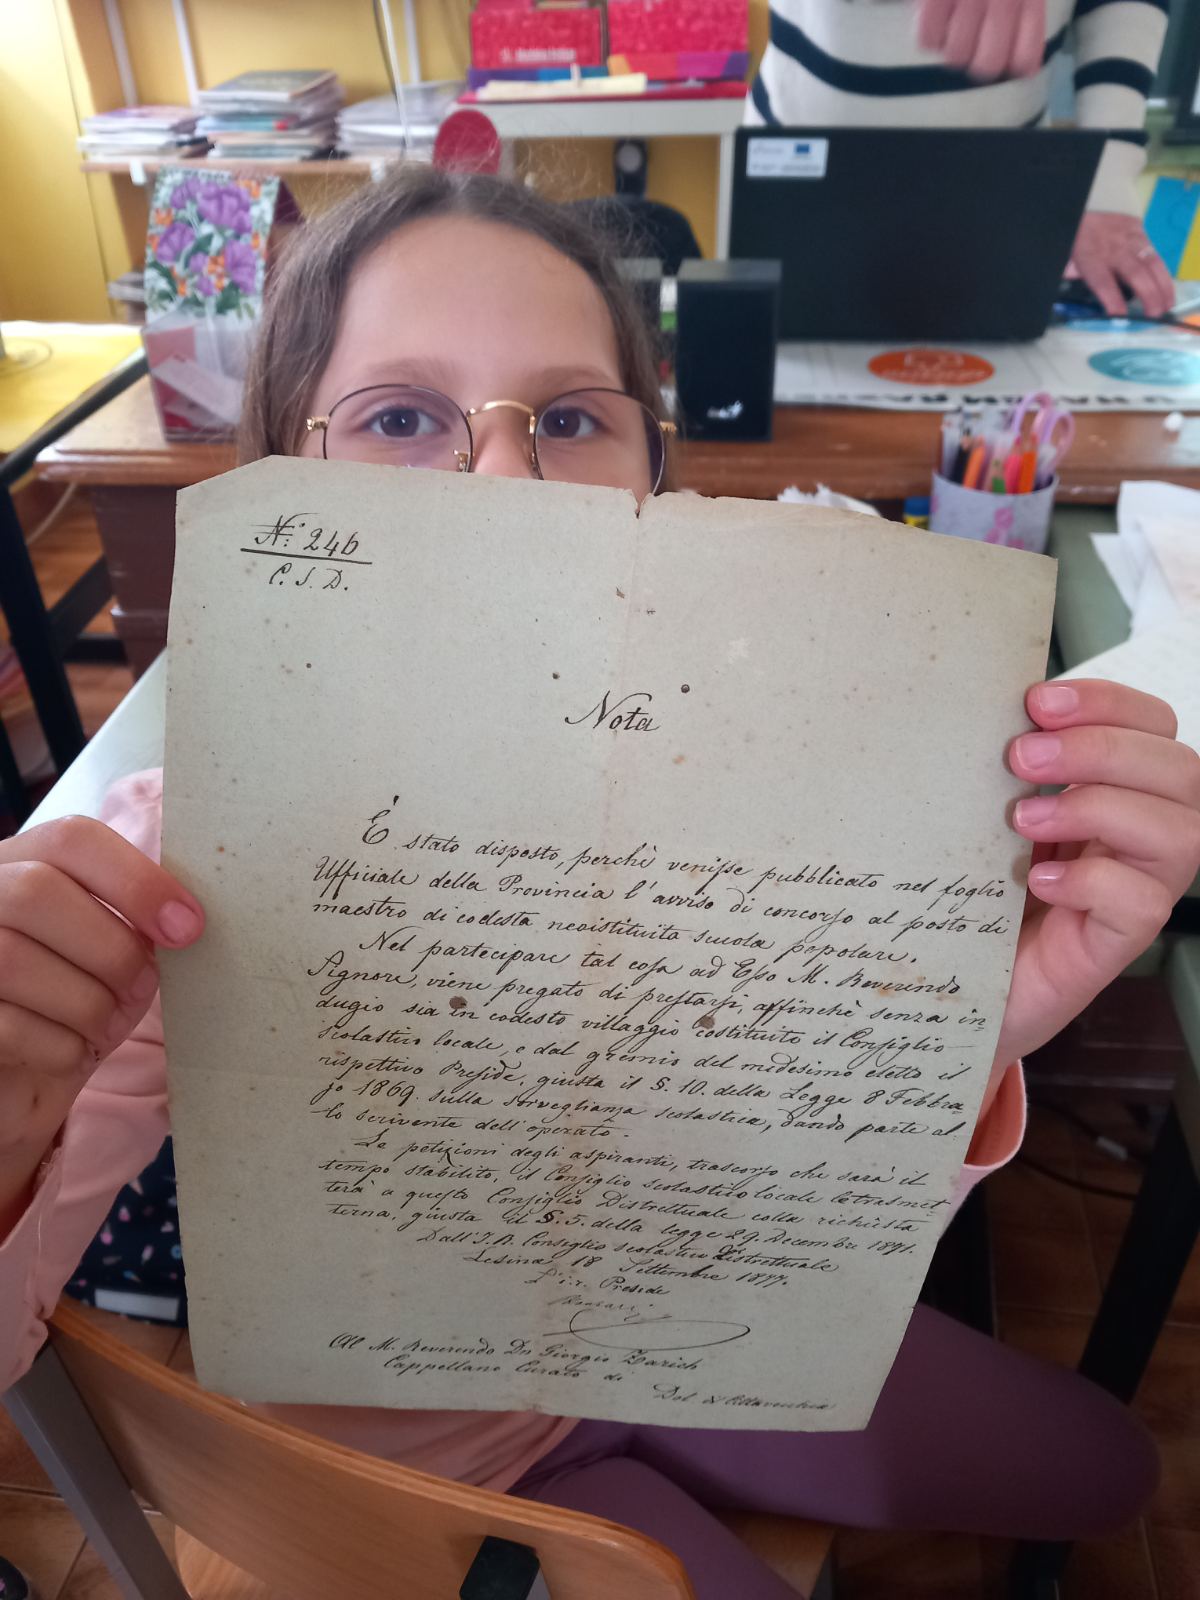 N.º 246
C. S. D.
Nota
È stato disposto, perchè venisse pubblicato nel foglio
Ufficiale della Provincia l'avviso di concorso al posto di
maestro di codesta neoistituita scuola popolare.
Nel partecipare tal cosa ad Esso M. Reverendo
Signore, viene pregato di prestarsi, affinchè senza in=
dugio sia in codesto villaggio costituito il Consiglio
scolastico locale, e dal gremio del medesimo eletto il
rispettivo Preside, giusta il §. 10. della Legge 8 Febbra=
jo 1869. sulla sorveglianza scolastica, dando parte al=
lo scrivente dell'operato.
Le petizioni degli aspiranti, trascorso che sarà il
tempo stabilito, il Consiglio scolastico locale le trasmet=
terà a questo Consiglio Distrettuale colla richiesta
terna, giusta il §. 5. della legge 29. Decembre 1871.
Dall'I. R. Consiglio scolastico Distrettuale
Lesina 18 Settembre 1877.
L'i. r. Preside
Al M. Reverendo Dn Giorgio Zarich
Cappellano Curato di
Dol di Cittavecchia